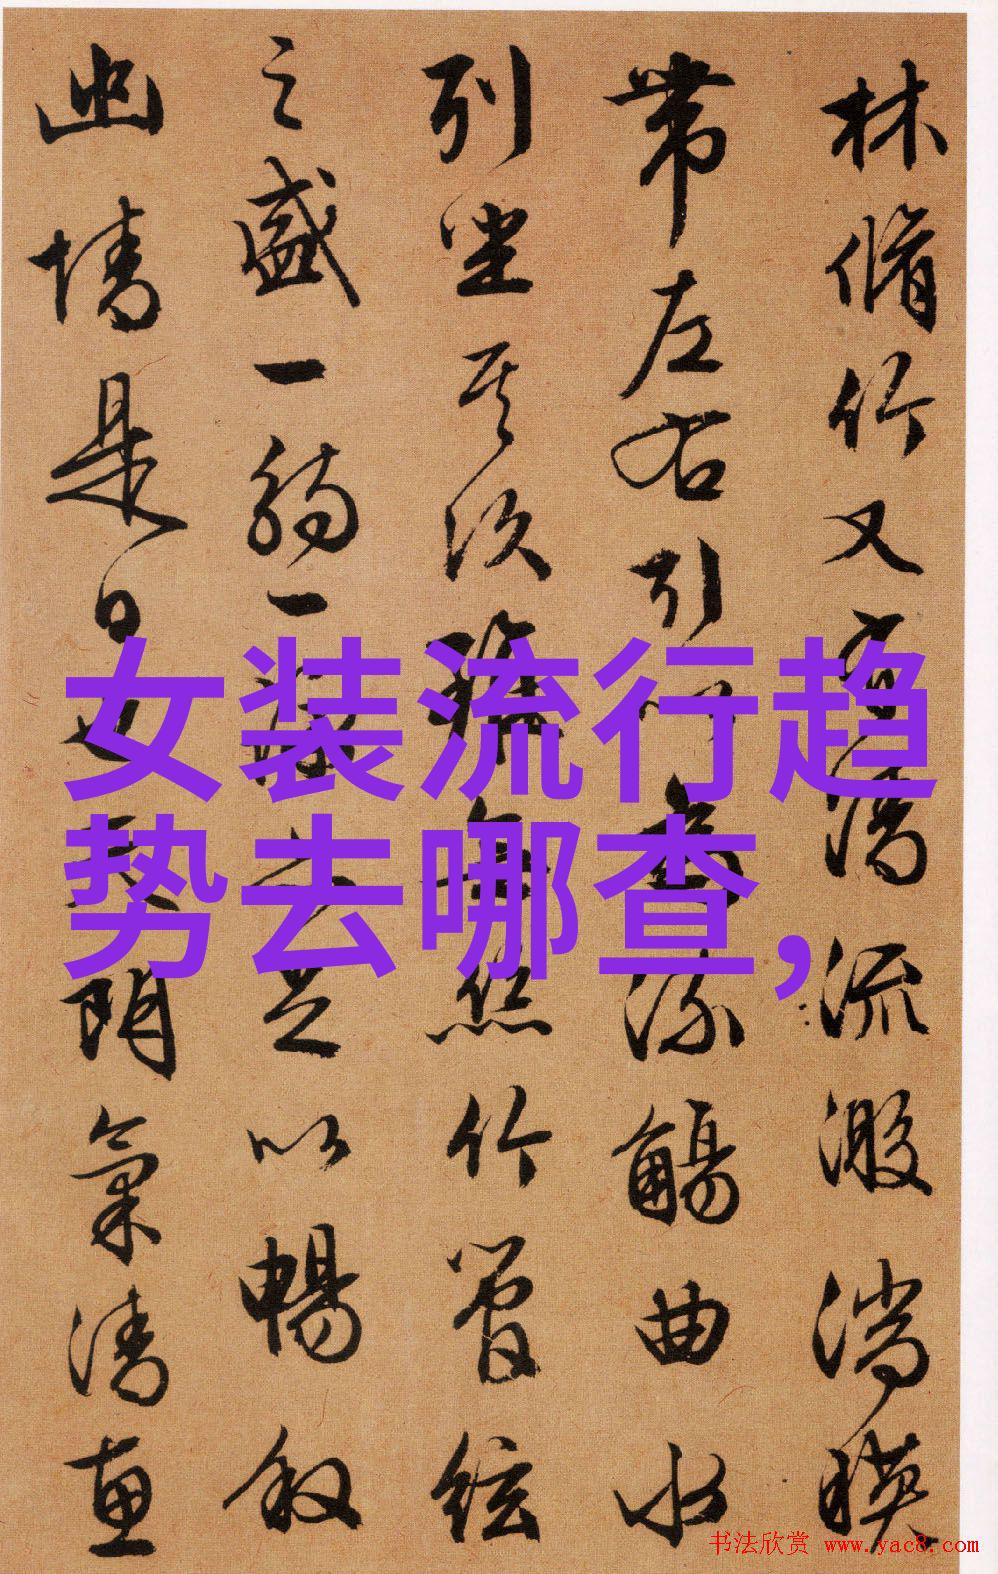 林脩竹又有清流激湍暎
帶左右引以為流觴曲水
列坐其次雖無絲竹管絃
之盛一觴一詠亦足以暢叙
幽情是日也天朗氣清惠
女装流行趋
势去哪查,
书法欣赏 www.yac8.com